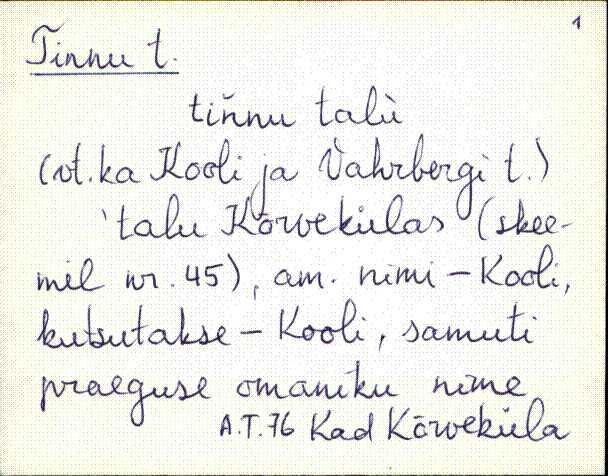 1
Tinnu t.
tiňnu talù
(vt. ka Kooli ja Vahrbergi t.)
'talu Kõrvekülas (skee-
mil nr. 45), am. nimi – Kooli,
kutsutakse – Kooli, samuti
praeguse omaniku nime
A.T. 76 Kad Kõrveküla